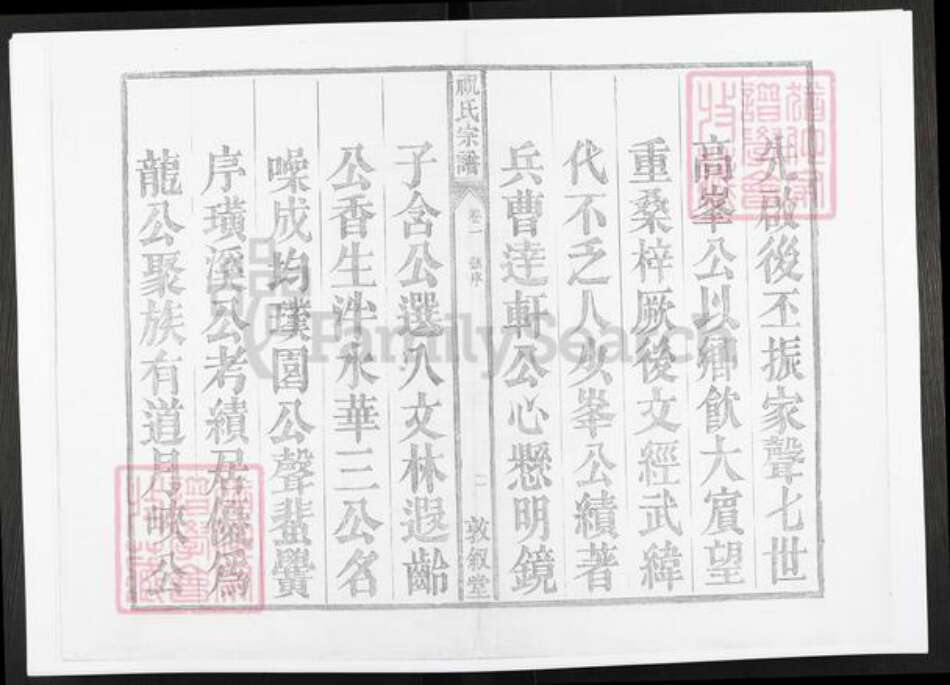 先啟後丕振家聲七世
高峯公以鄉飲大賓望
重桑梓厥後文經武緯
代不乏人次峯公績著
兵曹逹軒公心懸明鏡
祝氏宗譜
卷一
譜序
一
敦叙堂
子含公選入文林遐齡
公香生泮永華三公名
噪成均璞園公聲蜚黌
序璜溪公考績居優爲
龍公聚族有道月峽公
FamilySearch